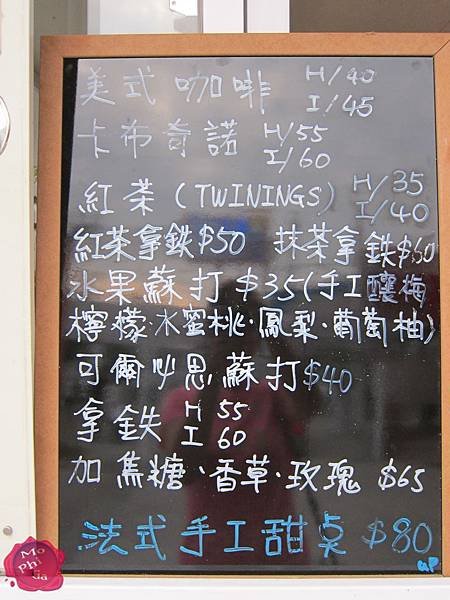 美式咖啡 H/40
I/45
卡布奇諾 H/55
I/60
紅茶(TWININGS) H/35
I/40
紅茶拿鉄$50 抹茶拿鉄$60
水果蘇打 $35(手工釀梅
檸檬·水蜜桃·鳳梨·葡萄柚)
可爾必思蘇打$40
拿鉄 H 55
I 60
加焦糖、香草·玫瑰 $65
法式手工甜点 $80
up
Mo
Phi
Ga